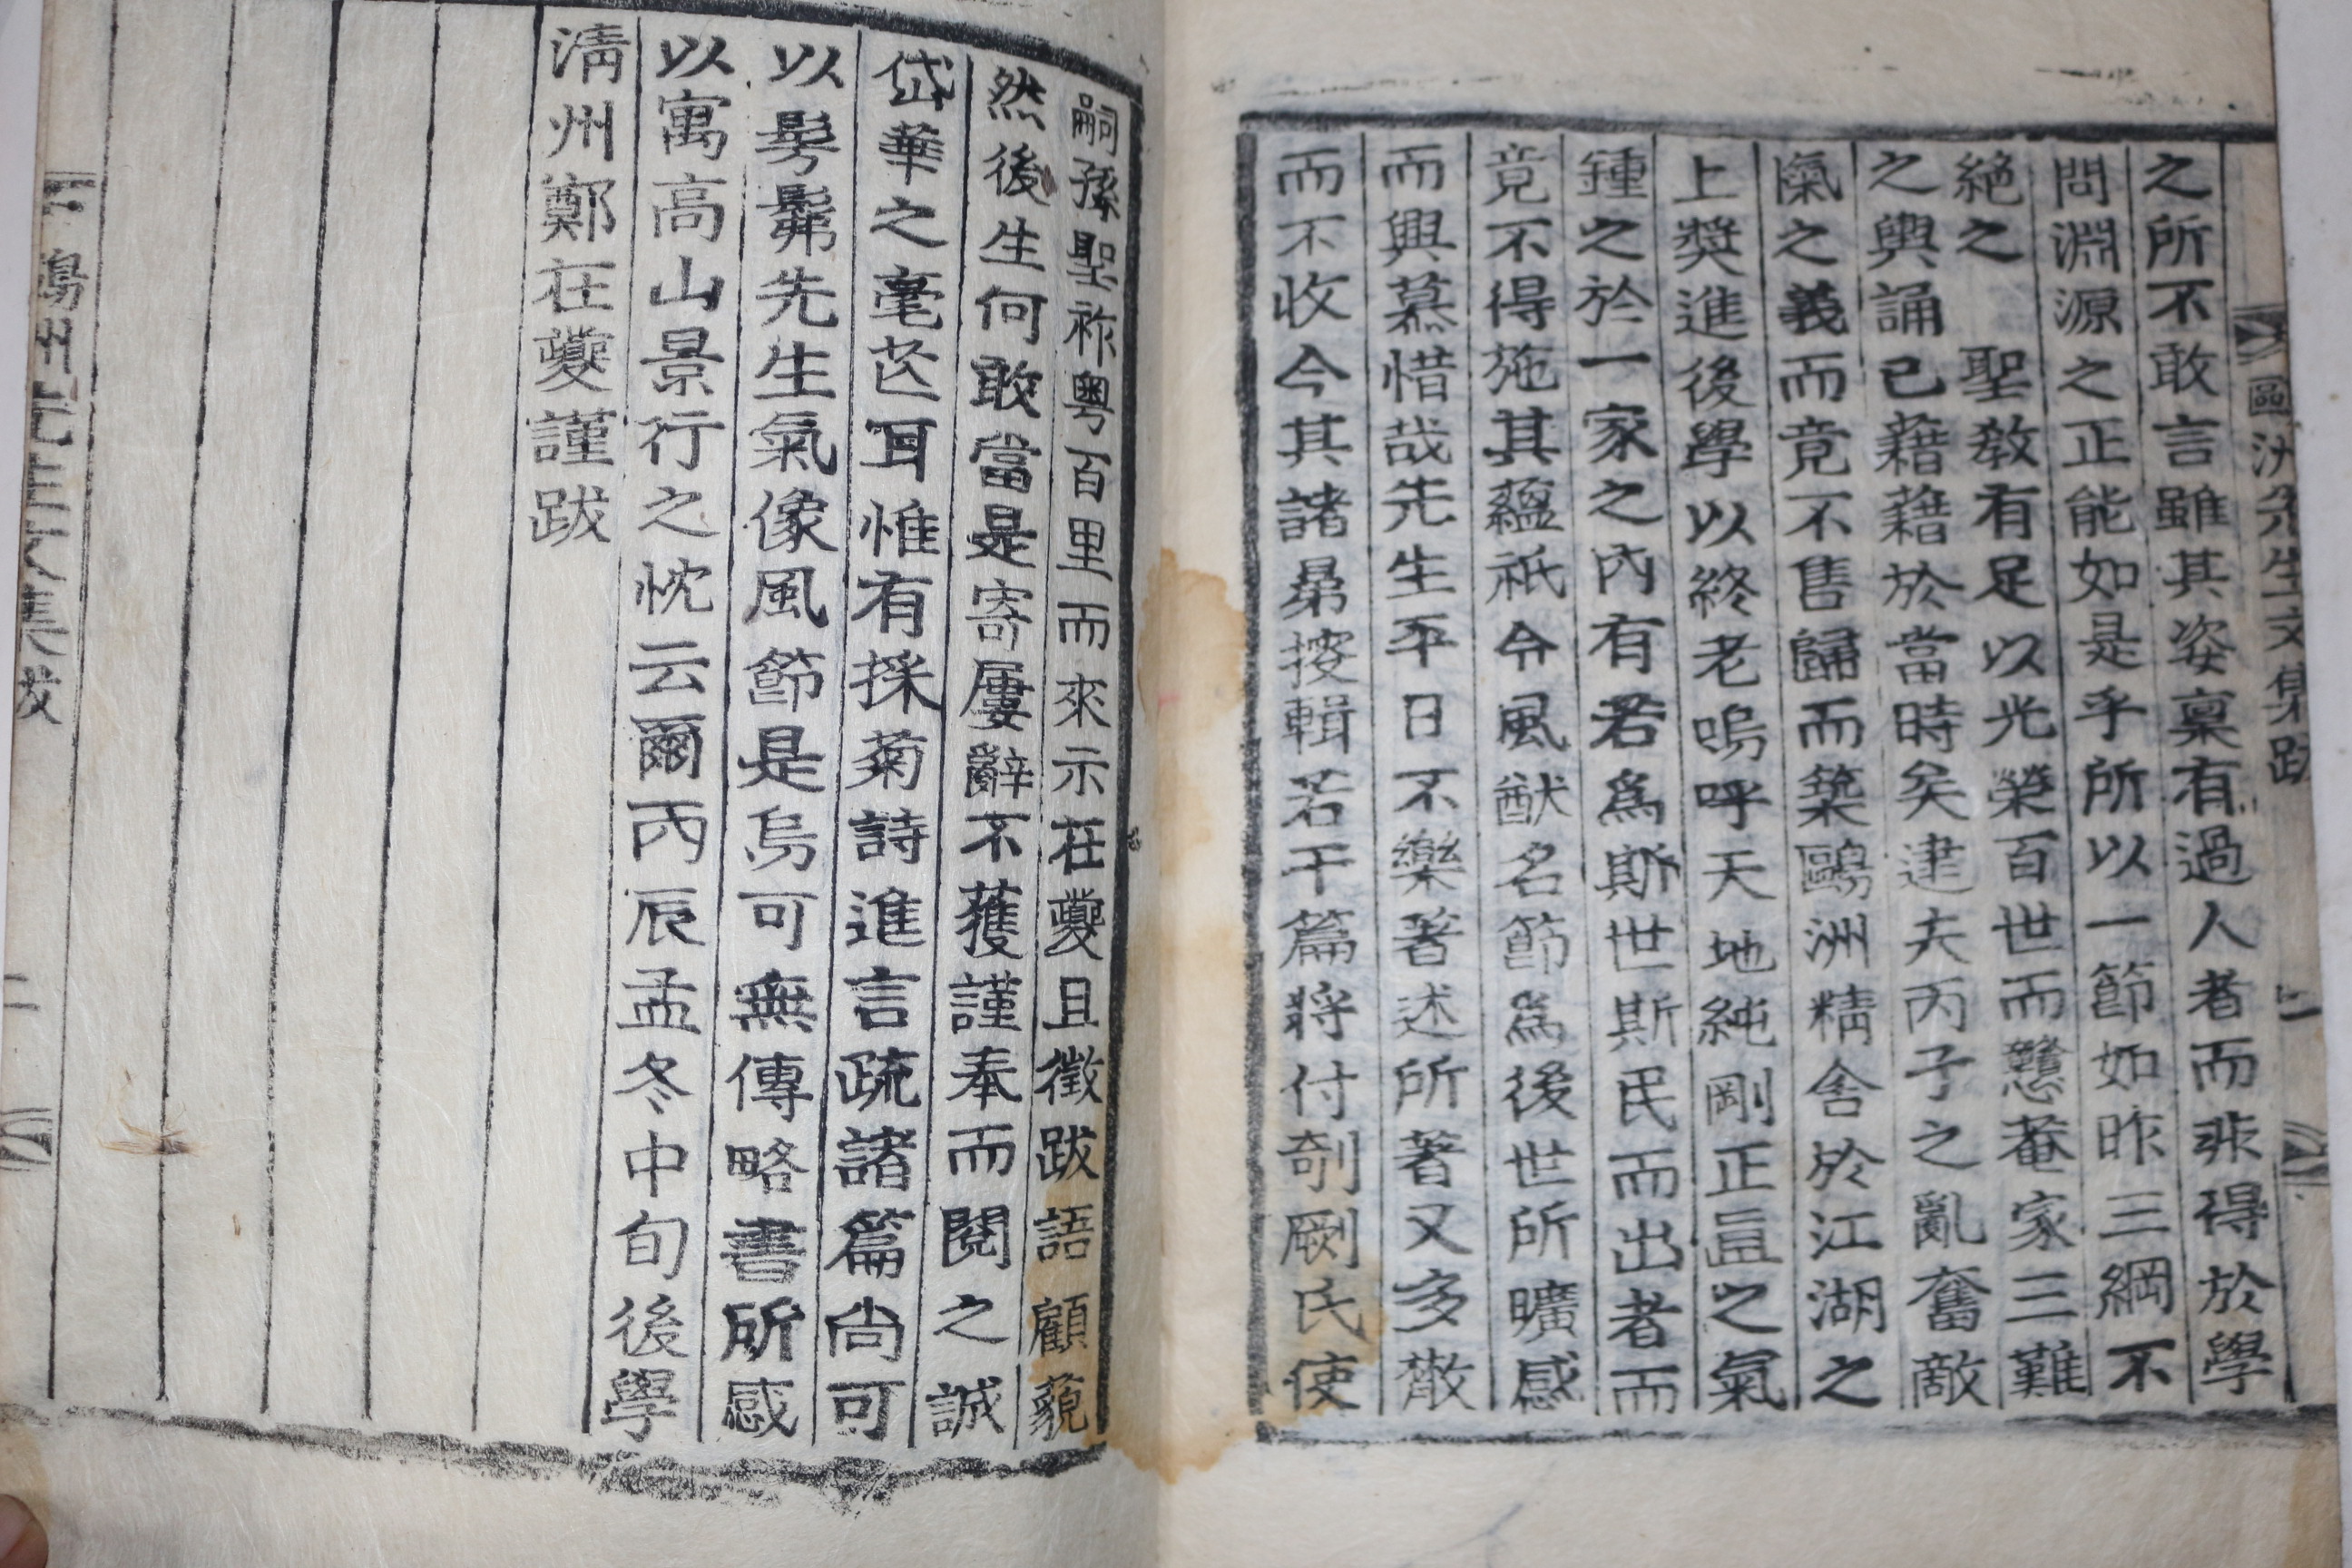 之所不敢言雖其姿稟有過人者而非得於學
問淵源之正能如是乎所以一節如昨三綱不
絶之 聖教有足以光榮百世而戇菴家三難
之輿誦已藉藉於當時矣逮夫丙子之亂奮敵
愾之義而竟不售歸而築鷗洲精舍於江湖之
上奬進後學以終老嗚呼天地純剛正直之氣
鍾之於一家之內有若爲斯世斯民而出者而
竟不得施其蘊祇令風猷名節爲後世所曠感
而興慕惜哉先生平日不樂著述所著又多散
而不收今其諸昴按輯若干篇將付剞劂氏使
嗣孫聖祚粤百里而來示在夔且徵跋語顧藐
然後生何敢當是寄屢辭不獲謹奉而閱之誠
岱華之毫芒耳惟有採菊詩進言疏諸篇尙可
以髣髴先生氣像風節是烏可無傳略書所感
以寓高山景行之忱云爾丙辰孟冬中旬後學
淸州鄭在夔謹跋
鷗洲先生文集跋
二